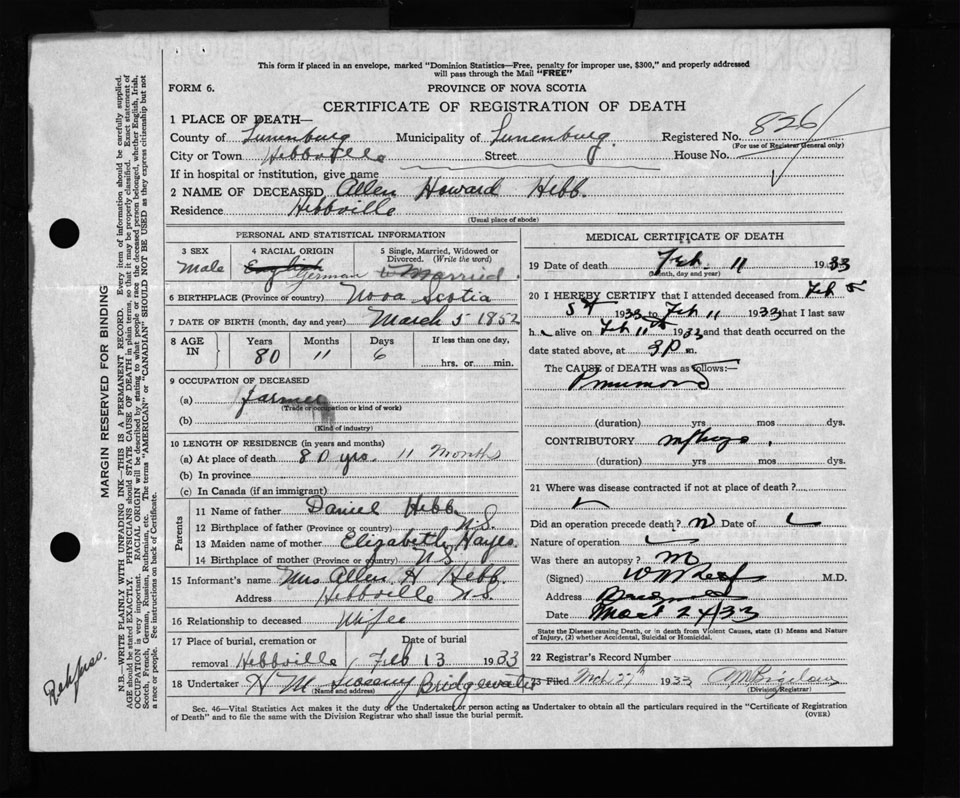 This form if placed in an envelope, marked "Dominion Statistics—Free, penalty for improper use, $300," and properly addressed
will pass through the Mail "FREE"
FORM 6.
PROVINCE OF NOVA SCOTIA
CERTIFICATE OF REGISTRATION OF DEATH
1 PLACE OF DEATH—
County of Lunenburg Municipality of Lunenburg Registered No. 826
(For use of Registrar General only)
City or Town Hebbville Street House No.
If in hospital or institution, give name
2 NAME OF DECEASED Allen Howard Hebb.
Residence Hebbville
(Usual place of abode)
PERSONAL AND STATISTICAL INFORMATION
3 SEX 4 RACIAL ORIGIN 5 Single, Married, Widowed or
Divorced. (Write the word)
Male English German Married.
6 BIRTHPLACE (Province or country) Nova Scotia
7 DATE OF BIRTH (month, day and year) March 5 1852
8 AGE IN Years Months Days If less than one day,
80 11 6 hrs. or min.
9 OCCUPATION OF DECEASED
(a) farmer
(Trade or occupation or kind of work)
(b)
(Kind of industry)
10 LENGTH OF RESIDENCE (in years and months)
(a) At place of death 80 yrs. 11 Months
(b) In province
(c) In Canada (if an immigrant)
Parents
11 Name of father Daniel Hebb
12 Birthplace of father (Province or country) N.S.
13 Maiden name of mother Elizabeth Hayes.
14 Birthplace of mother (Province or country) N.S.
15 Informant's name Mrs Allen H Hebb.
Address Hebbville N.S
16 Relationship to deceased Wife
17 Place of burial, cremation or Date of burial
removal Hebbville Feb 13 1933
18 Undertaker H M Sweeny Bridgewater
(Name and address)
MEDICAL CERTIFICATE OF DEATH
19 Date of death Feb. 11 1933
(Month, day and year)
20 I HEREBY CERTIFY that I attended deceased from Feb 5
1933 to Feb 11 1933 that I last saw
h alive on Feb 11 1933 and that death occurred on the
date stated above, at 3 p m.
The CAUSE of DEATH was as follows:—
Pneumonia
(duration) yrs mos dys.
CONTRIBUTORY
(duration) yrs mos dys.
21 Where was disease contracted if not at place of death?
Did an operation precede death? n Date of
Nature of operation
Was there an autopsy?
(Signed) M.D.
Address
Date 24/33
State the Disease causing Death, or in death from Violent Causes, state (1) Means and Nature
of Injury, (2) whether Accidental, Suicidal or Homicidal.
22 Registrar's Record Number
23 Filed Mch 27th 1933
(Division Registrar)
Sec. 46—Vital Statistics Act makes it the duty of the Undertaker or person acting as Undertaker to obtain all the particulars required in the "Certificate of Registration
of Death" and to file the same with the Division Registrar who shall issue the burial permit.
(OVER)
MARGIN RESERVED FOR BINDING
N.B.—WRITE PLAINLY WITH UNFADING INK—THIS IS A PERMANENT RECORD. Every item of information should be carefully supplied.
AGE should be stated EXACTLY. PHYSICIANS should STATE CAUSE OF DEATH in plain terms, so that it may be properly classified. Exact statement of
OCCUPATION is very important. RACIAL ORIGIN will be described by stating to what people or race the deceased person belonged, whether English, Irish,
Scotch, French, German, Russian, Ruthenian, etc. The terms "AMERICAN" or "CANADIAN" SHOULD NOT BE USED as they express citizenship but not
a race or people. See instructions on back of Certificate.